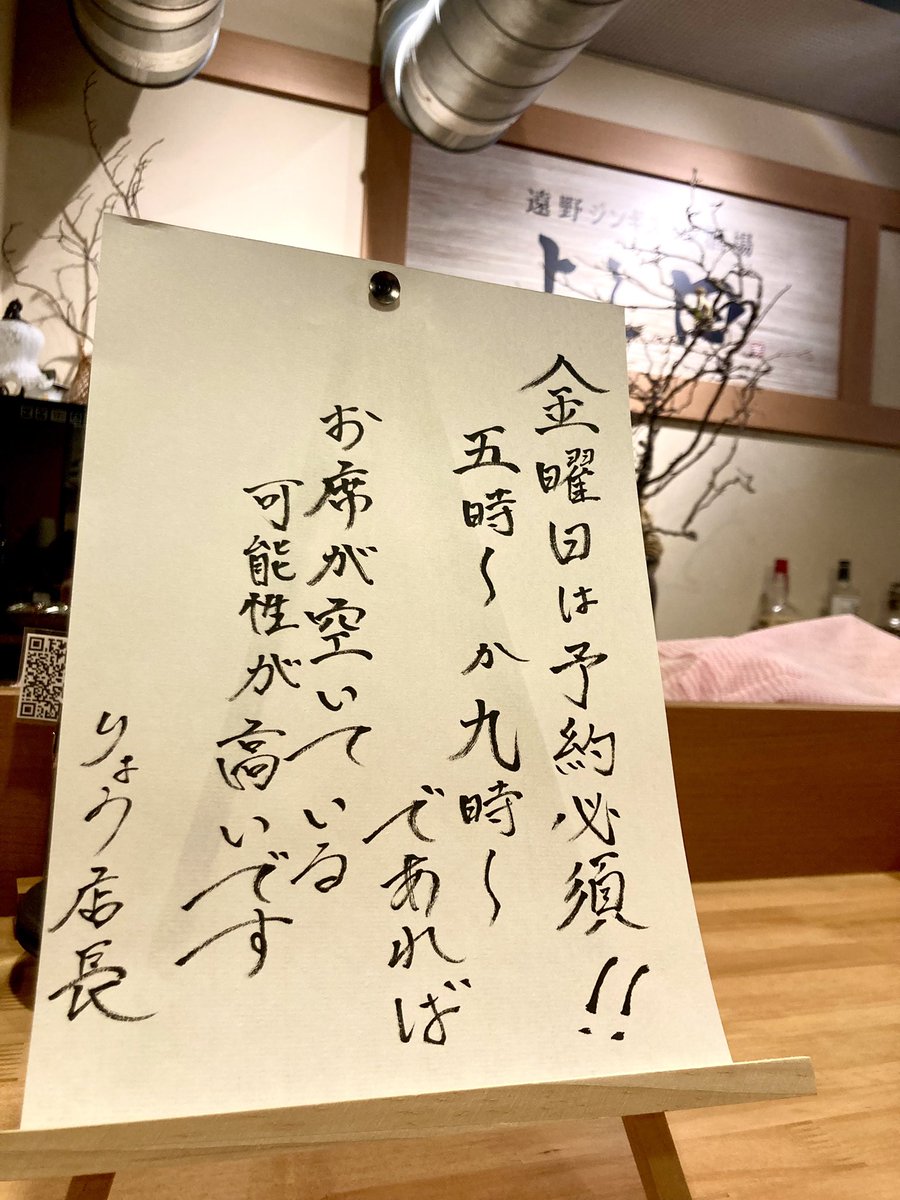 金曜日は予約必須!!
五時〜か九時〜
であれば
お席が空いている
可能性が高いです
りょう店長
遠野ジンギ